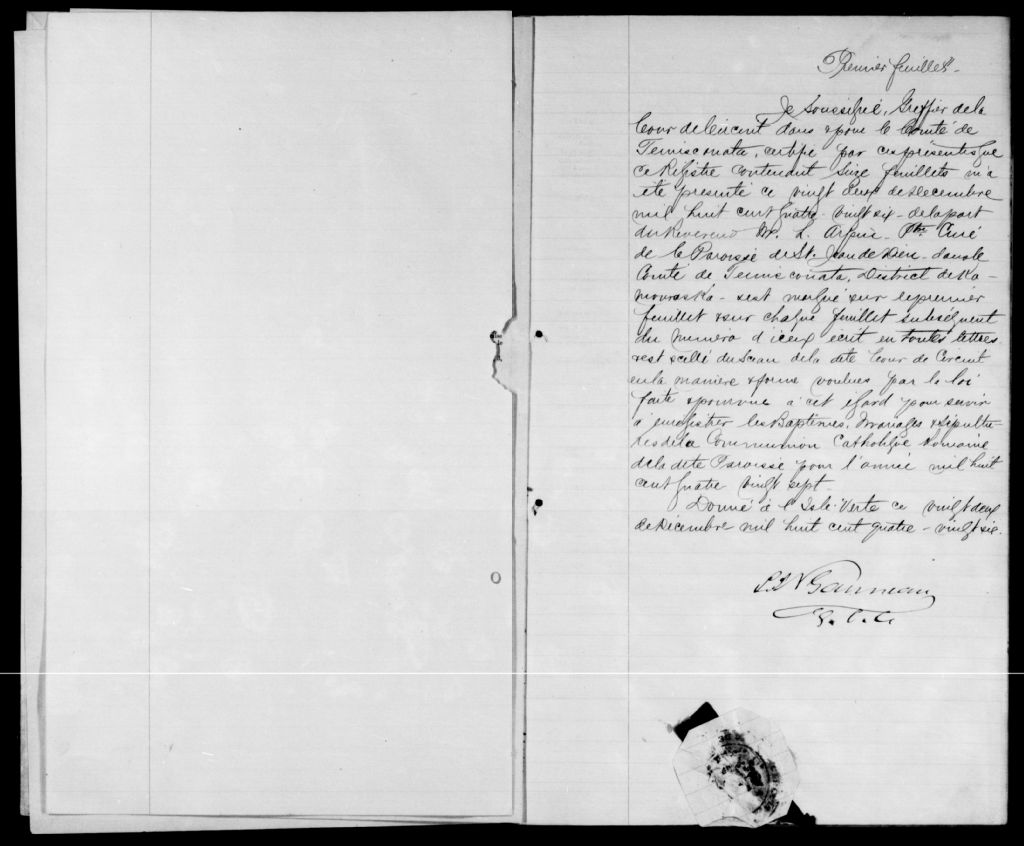 Premier feuillet.
Je Soussigné, Greffier de la
Cour de Circuit dans & pour le Comté de
Temiscouata, certifie par ces présentes que
ce Régistre contenant Seize feuillets m'a
été présenté ce vingt deux de Decembre
mil huit cent quatre-vingt six - de la part
du Révérend Mr. L. Arpin - Ptre Curé
de la Paroisse de St. Jean de Dieu - dans le
Comté de Temiscouata, District de Ka-
mouraska - & est marqué sur le premier
feuillet & sur chaque feuillet subséquent
du numéro d'iceux écrit en toutes lettres
& est scellé du Sceau de la dite Cour de Circuit
en la manière & forme voulues par la loi
faite & pourvue à cet égard pour servir
à enregistrer les Baptêmes, Mariages & Sépultu-
res de la Communion Catholique Romaine
de la dite Paroisse pour l'année mil huit
cent quatre vingt sept -
Donné à l'Isle-Verte ce vingt deux
de Décembre mil huit cent quatre-vingt six.
Gauvreau
G. C. C.